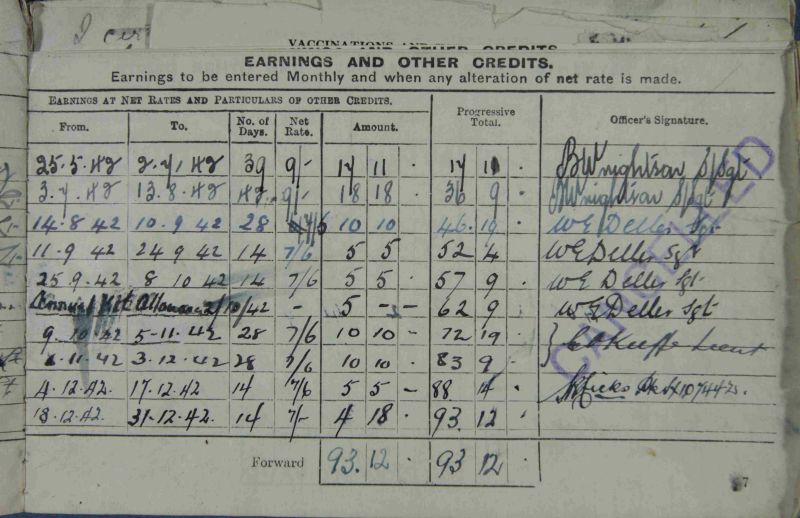 VACCINATIONS AND
EARNINGS AND OTHER CREDITS.
Earnings to be entered Monthly and when any alteration of net rate is made.
EARNINGS AT NET RATES AND PARTICULARS OF OTHER CREDITS.
From. To. No. of Days. Net Rate. Amount. Progressive Total. Officer's Signature.
25.5.42 2.7.42 39 9/- 17 11 . 17 11 . BWrightson S/Sgt
3.7.42 13.8.42 42 9/- 18 18 . 36 9 . BWrightson S/Sgt
14.8 42 10.9 42 28 7/6 10 10 46.19 . W E Deller Sgt
11.9 42 24 9 42 14 7/6 5 5 52 4 W E Deller Sgt
25 9.42 8 10 42 14 7/6 5 5 . 57 9 . W E Deller Sgt
Annual Kit Allowance 2/10/42 - 5 - - 62 9 . W E Deller Sgt
9.10.42 5-11.42 28 7/6 10 10 - 72 19 .
11.42 3.12.42 28 7/6 10 10 . 83 9 . Lieut
4.12.42. 17.12.42 14 7/6 5 5 - 88 14 .
18.12.42. 31-12.42. 14 7/- 4 18 . 93. 12 .
CANCELLED
Forward 93. 12 . 93 12 .
7